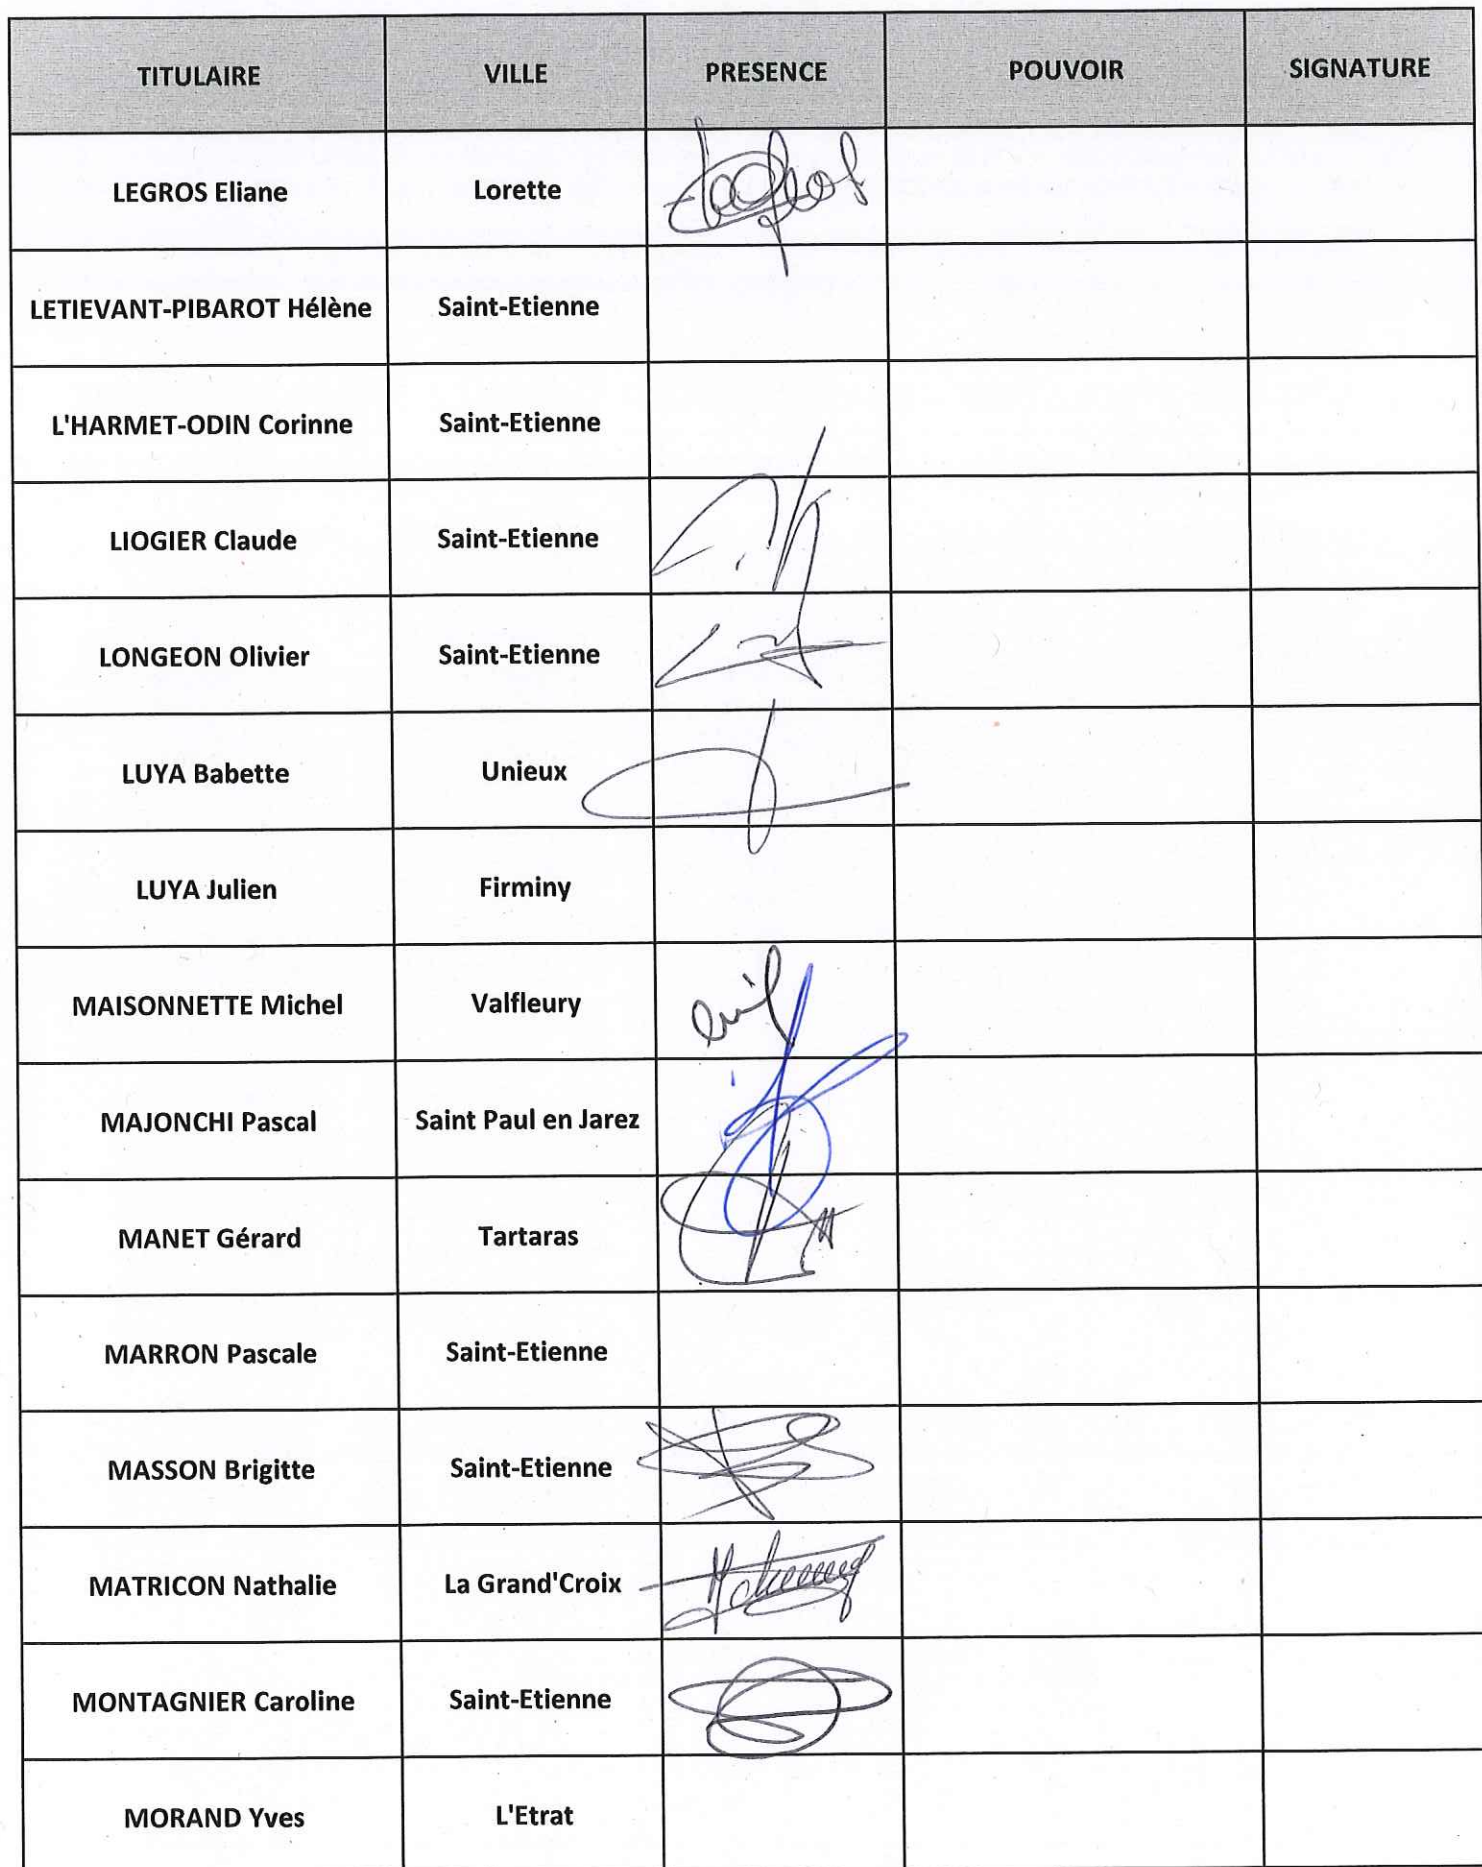 TITULAIRE VILLE PRESENCE POUVOIR SIGNATURE
LEGROS Eliane Lorette
LETIEVANT-PIBAROT Hélène Saint-Etienne
L'HARMET-ODIN Corinne Saint-Etienne
LIOGIER Claude Saint-Etienne
LONGEON Olivier Saint-Etienne
LUYA Babette Unieux
LUYA Julien Firminy
MAISONNETTE Michel Valfleury
MAJONCHI Pascal Saint Paul en Jarez
MANET Gérard Tartaras
MARRON Pascale Saint-Etienne
MASSON Brigitte Saint-Etienne
MATRICON Nathalie La Grand'Croix
MONTAGNIER Caroline Saint-Etienne
MORAND Yves L'Etrat